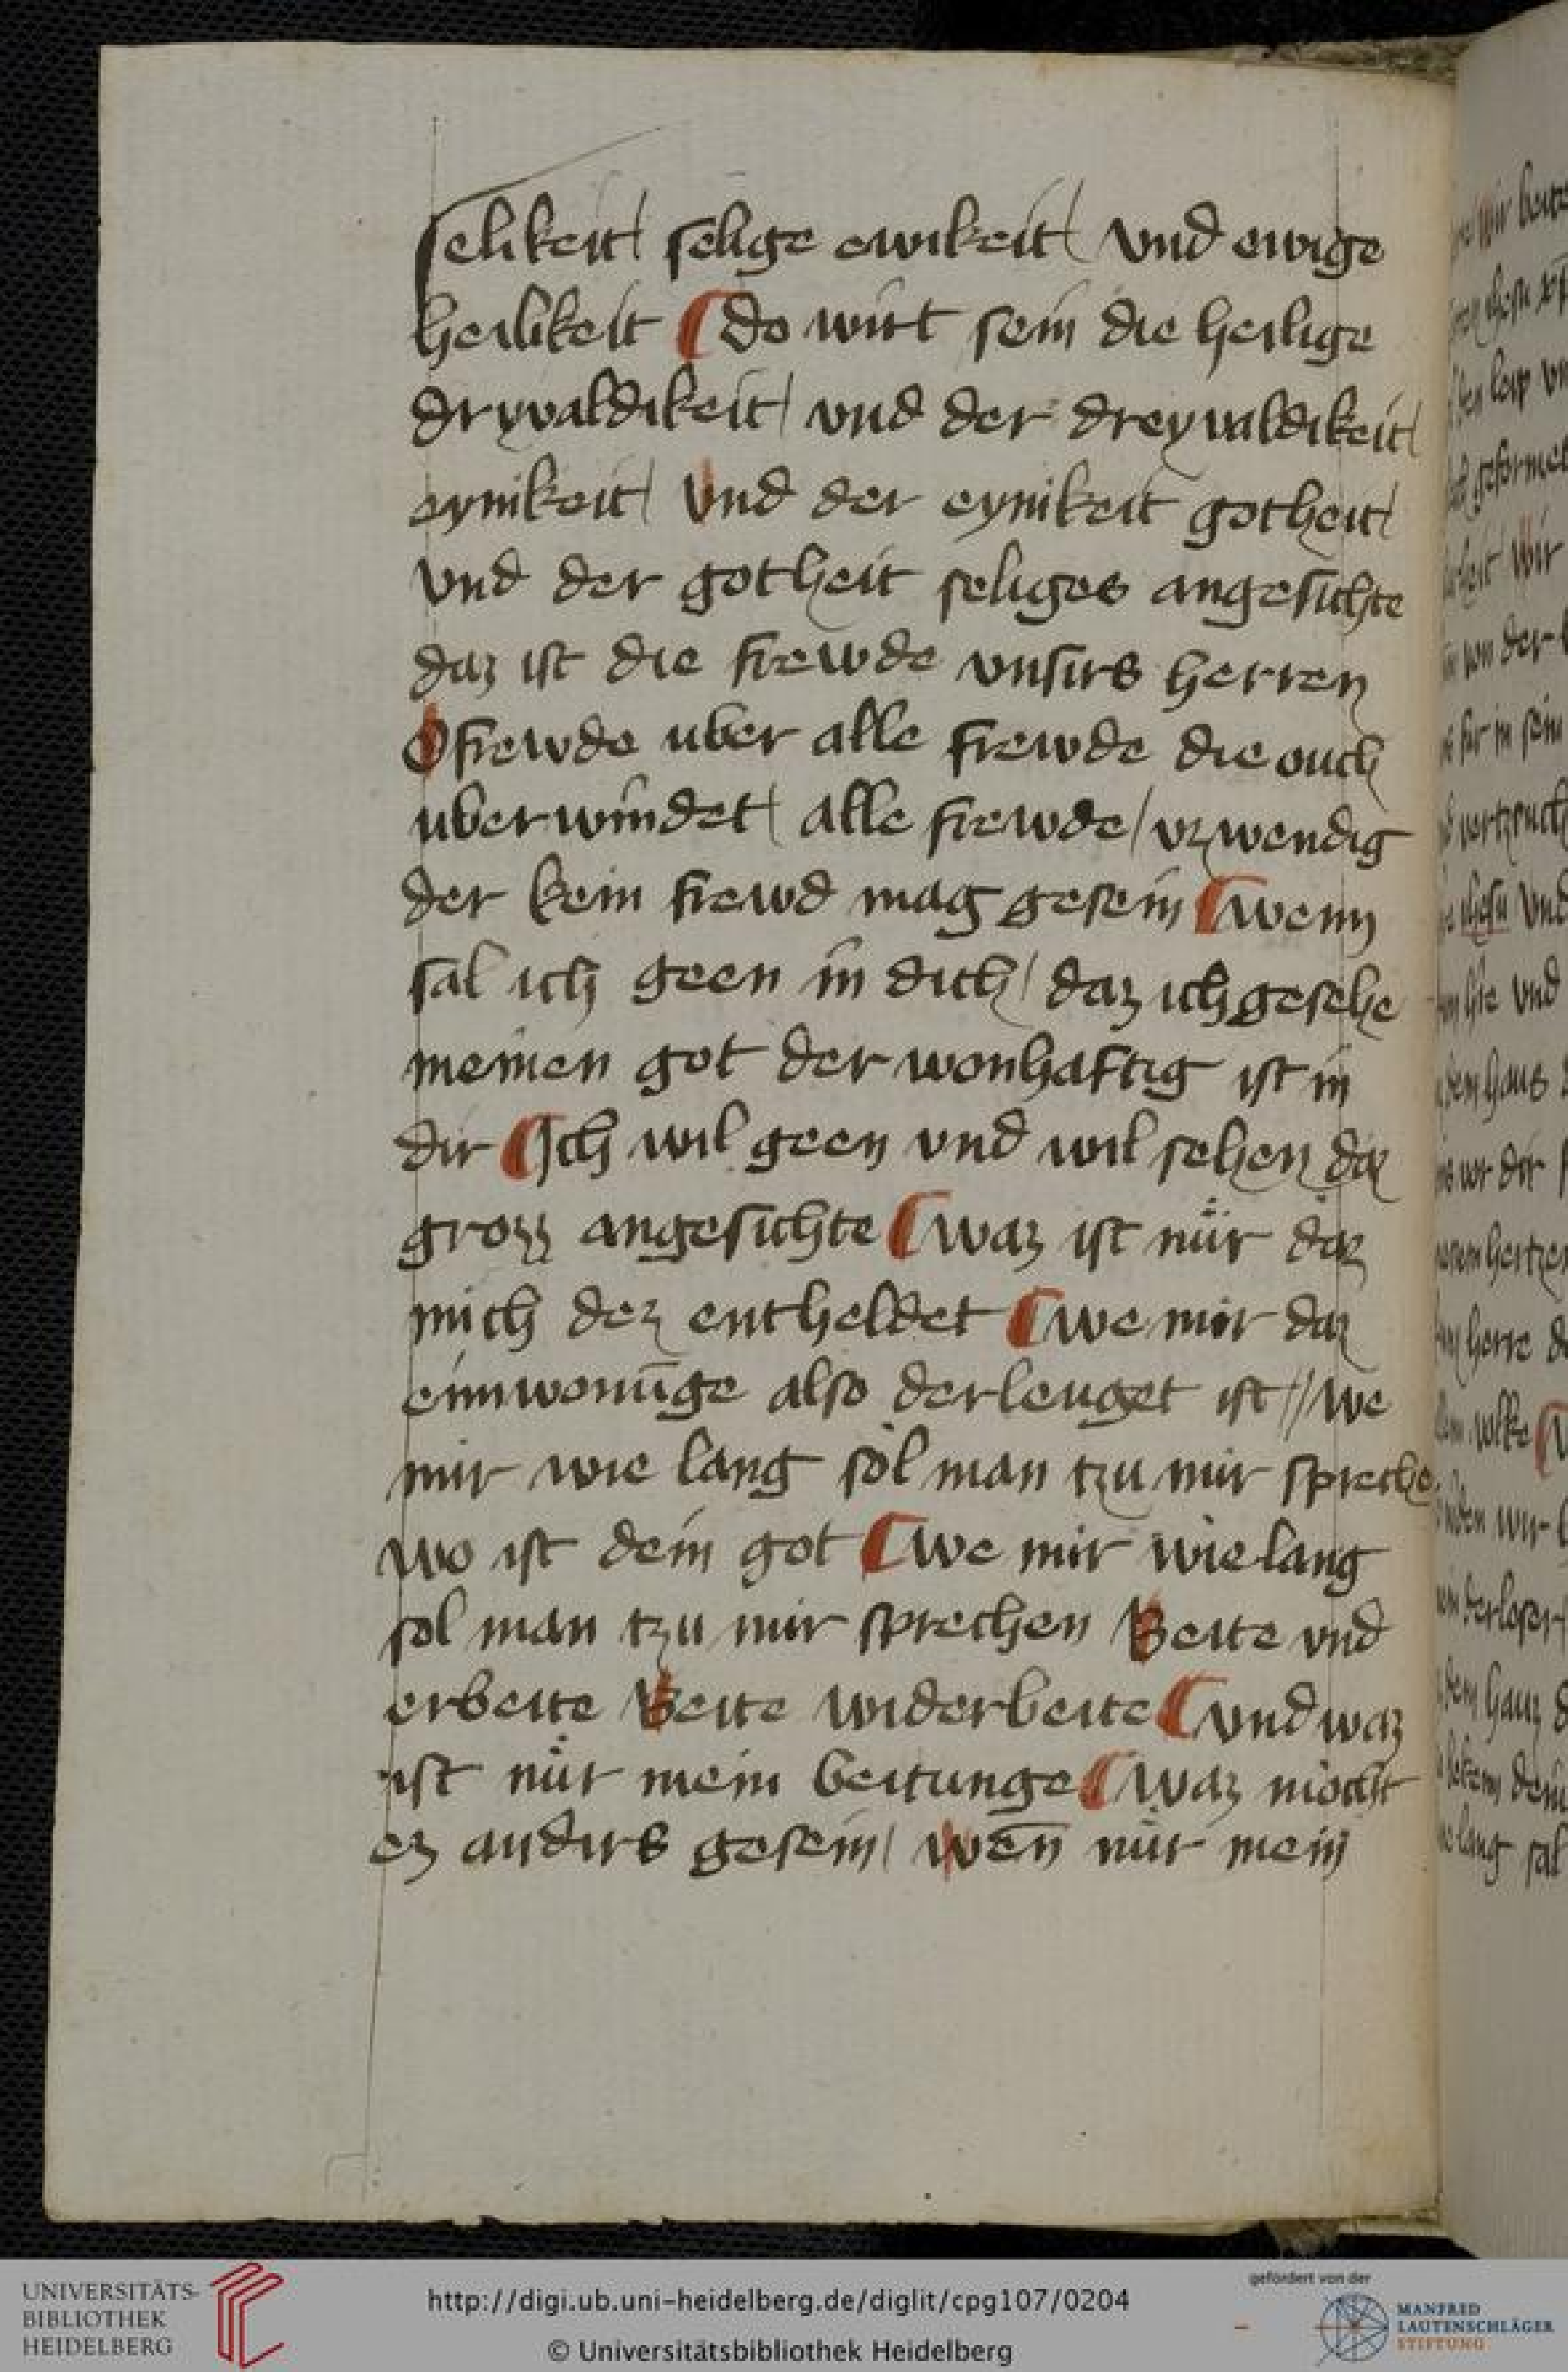 selikeit/ selige ewikeit/ vnd ewige
heilikeit ¶ do wirt sein die heilige
dryvaldikeit/ vnd der dreyualdikeit/
eynikeit/ Vnd der eynikeit gotheit/
vnd der gotheit seliges angesichte
daz ist die frewde vnsirs herren
O frewde uber alle frewde die ouch
uberwindet/ alle frewde/ vzwendig
der kein frewd mag gesein ¶ wenn
sal ich geen in dich/ daz ich gesehe
meinen got der wonhaftig ist in
dir ¶ Ich wil geen vnd wil sehen daz
grozz angesichte ¶ waz ist nür daz
mich dez entheldet ¶ we mir daz
einwonūge also derlenget ist // we
mir wie lang sol man tzu mir spreche
wo ist dein got ¶ we mir wie lang
sol man tzu mir sprechen Beite vnd
erbeite Beite widerbeite ¶ vnd waz
ist nür mein beitunge ¶ waz möcht
ez andirs gesein/ wen̄ nür mein
UNIVERSITÄTS-
BIBLIOTHEK
HEIDELBERG
http://digi.ub.uni-heidelberg.de/diglit/cpg107/0204
© Universitätsbibliothek Heidelberg
gefördert von der
MANFRED
LAUTENSCHLÄGER
STIFTUNG